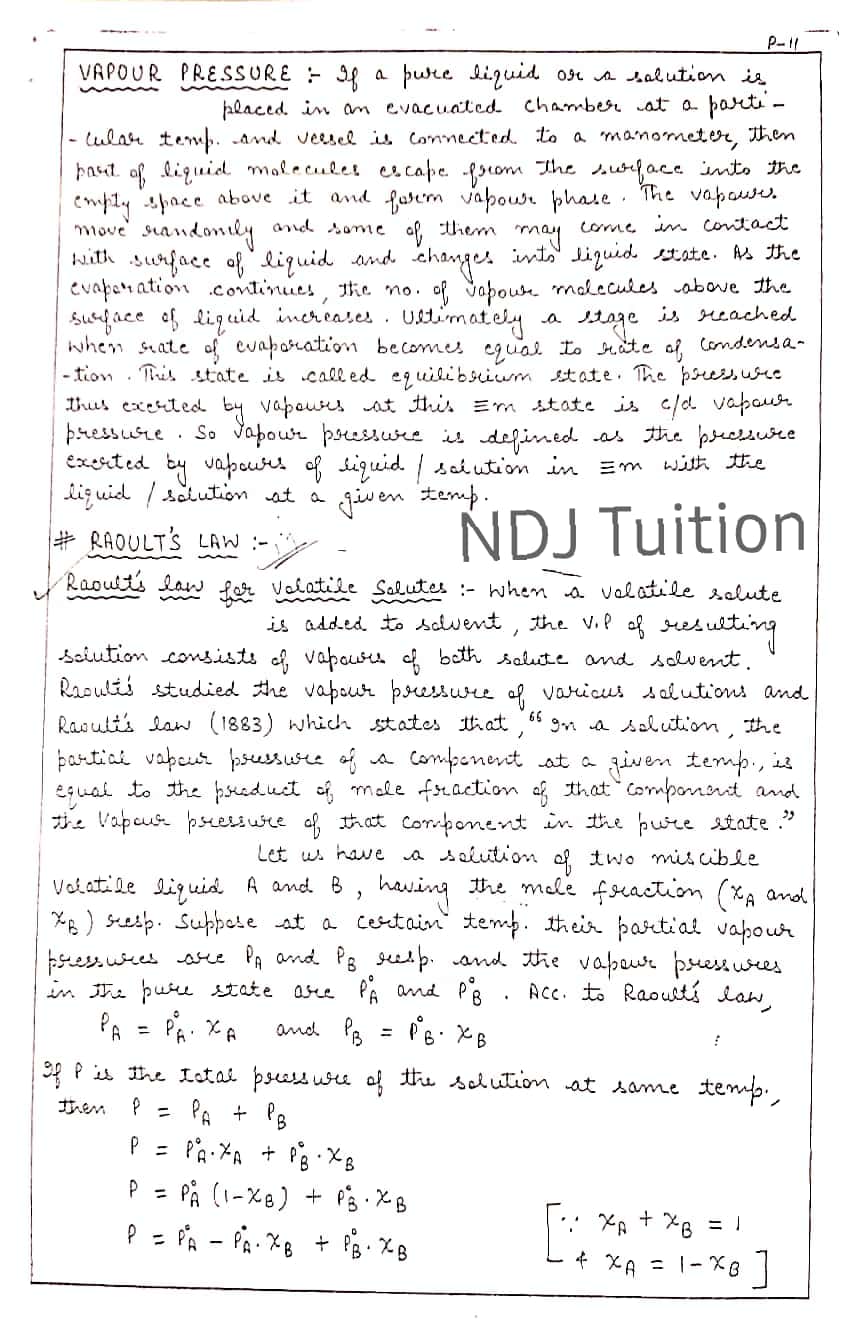 P-11
VAPOUR PRESSURE :- If a pure liquid or a solution is
placed in an evacuated chamber at a parti -
- cular temp. and vessel is connected to a manometer, then
part of liquid molecules escape from the surface into the
empty space above it and form vapour phase. The vapours.
move randomly and some of them may come in contact
with surface of liquid and changes into liquid state. As the
evaporation continues, the no. of vapour molecules above the
surface of liquid increases. Ultimately a stage is reached
when rate of evaporation becomes equal to rate of condensa-
-tion. This state is called equilibrium state. The pressure
thus exerted by vapours at this Ξm state is c/d vapour
pressure. So vapour pressure is defined as the pressure
exerted by vapours of liquid / solution in Ξm with the
liquid / solution at a given temp.
NDJ Tuition
# RAOULT'S LAW :-
✓ Raoult's law for Volatile Solutes :- When a volatile solute
is added to solvent, the V.P of resulting
solution consists of vapours of both solute and solvent.
Raoult's studied the vapour pressure of various solutions and
Raoult's law (1883) which states that, "In a solution, the
partial vapour pressure of a component at a given temp., is
equal to the product of mole fraction of that component and
the Vapour pressure of that component in the pure state."
Let us have a solution of two miscible
Volatile liquid A and B, having the mole fraction (xA and
xB) resp. Suppose at a certain temp. their partial vapour
pressures are PA and PB resp. and the vapour pressures
in the pure state are P°A and P°B. Acc. to Raoult's law,
PA = P°A . xA and PB = P°B . xB
If P is the total pressure of the solution at same temp.,
then P = PA + PB
P = P°A . xA + P°B . xB
P = P°A (1-xB) + P°B . xB
P = P°A - P°A . xB + P°B . xB
[∵ xA + xB = 1
& xA = 1-xB]